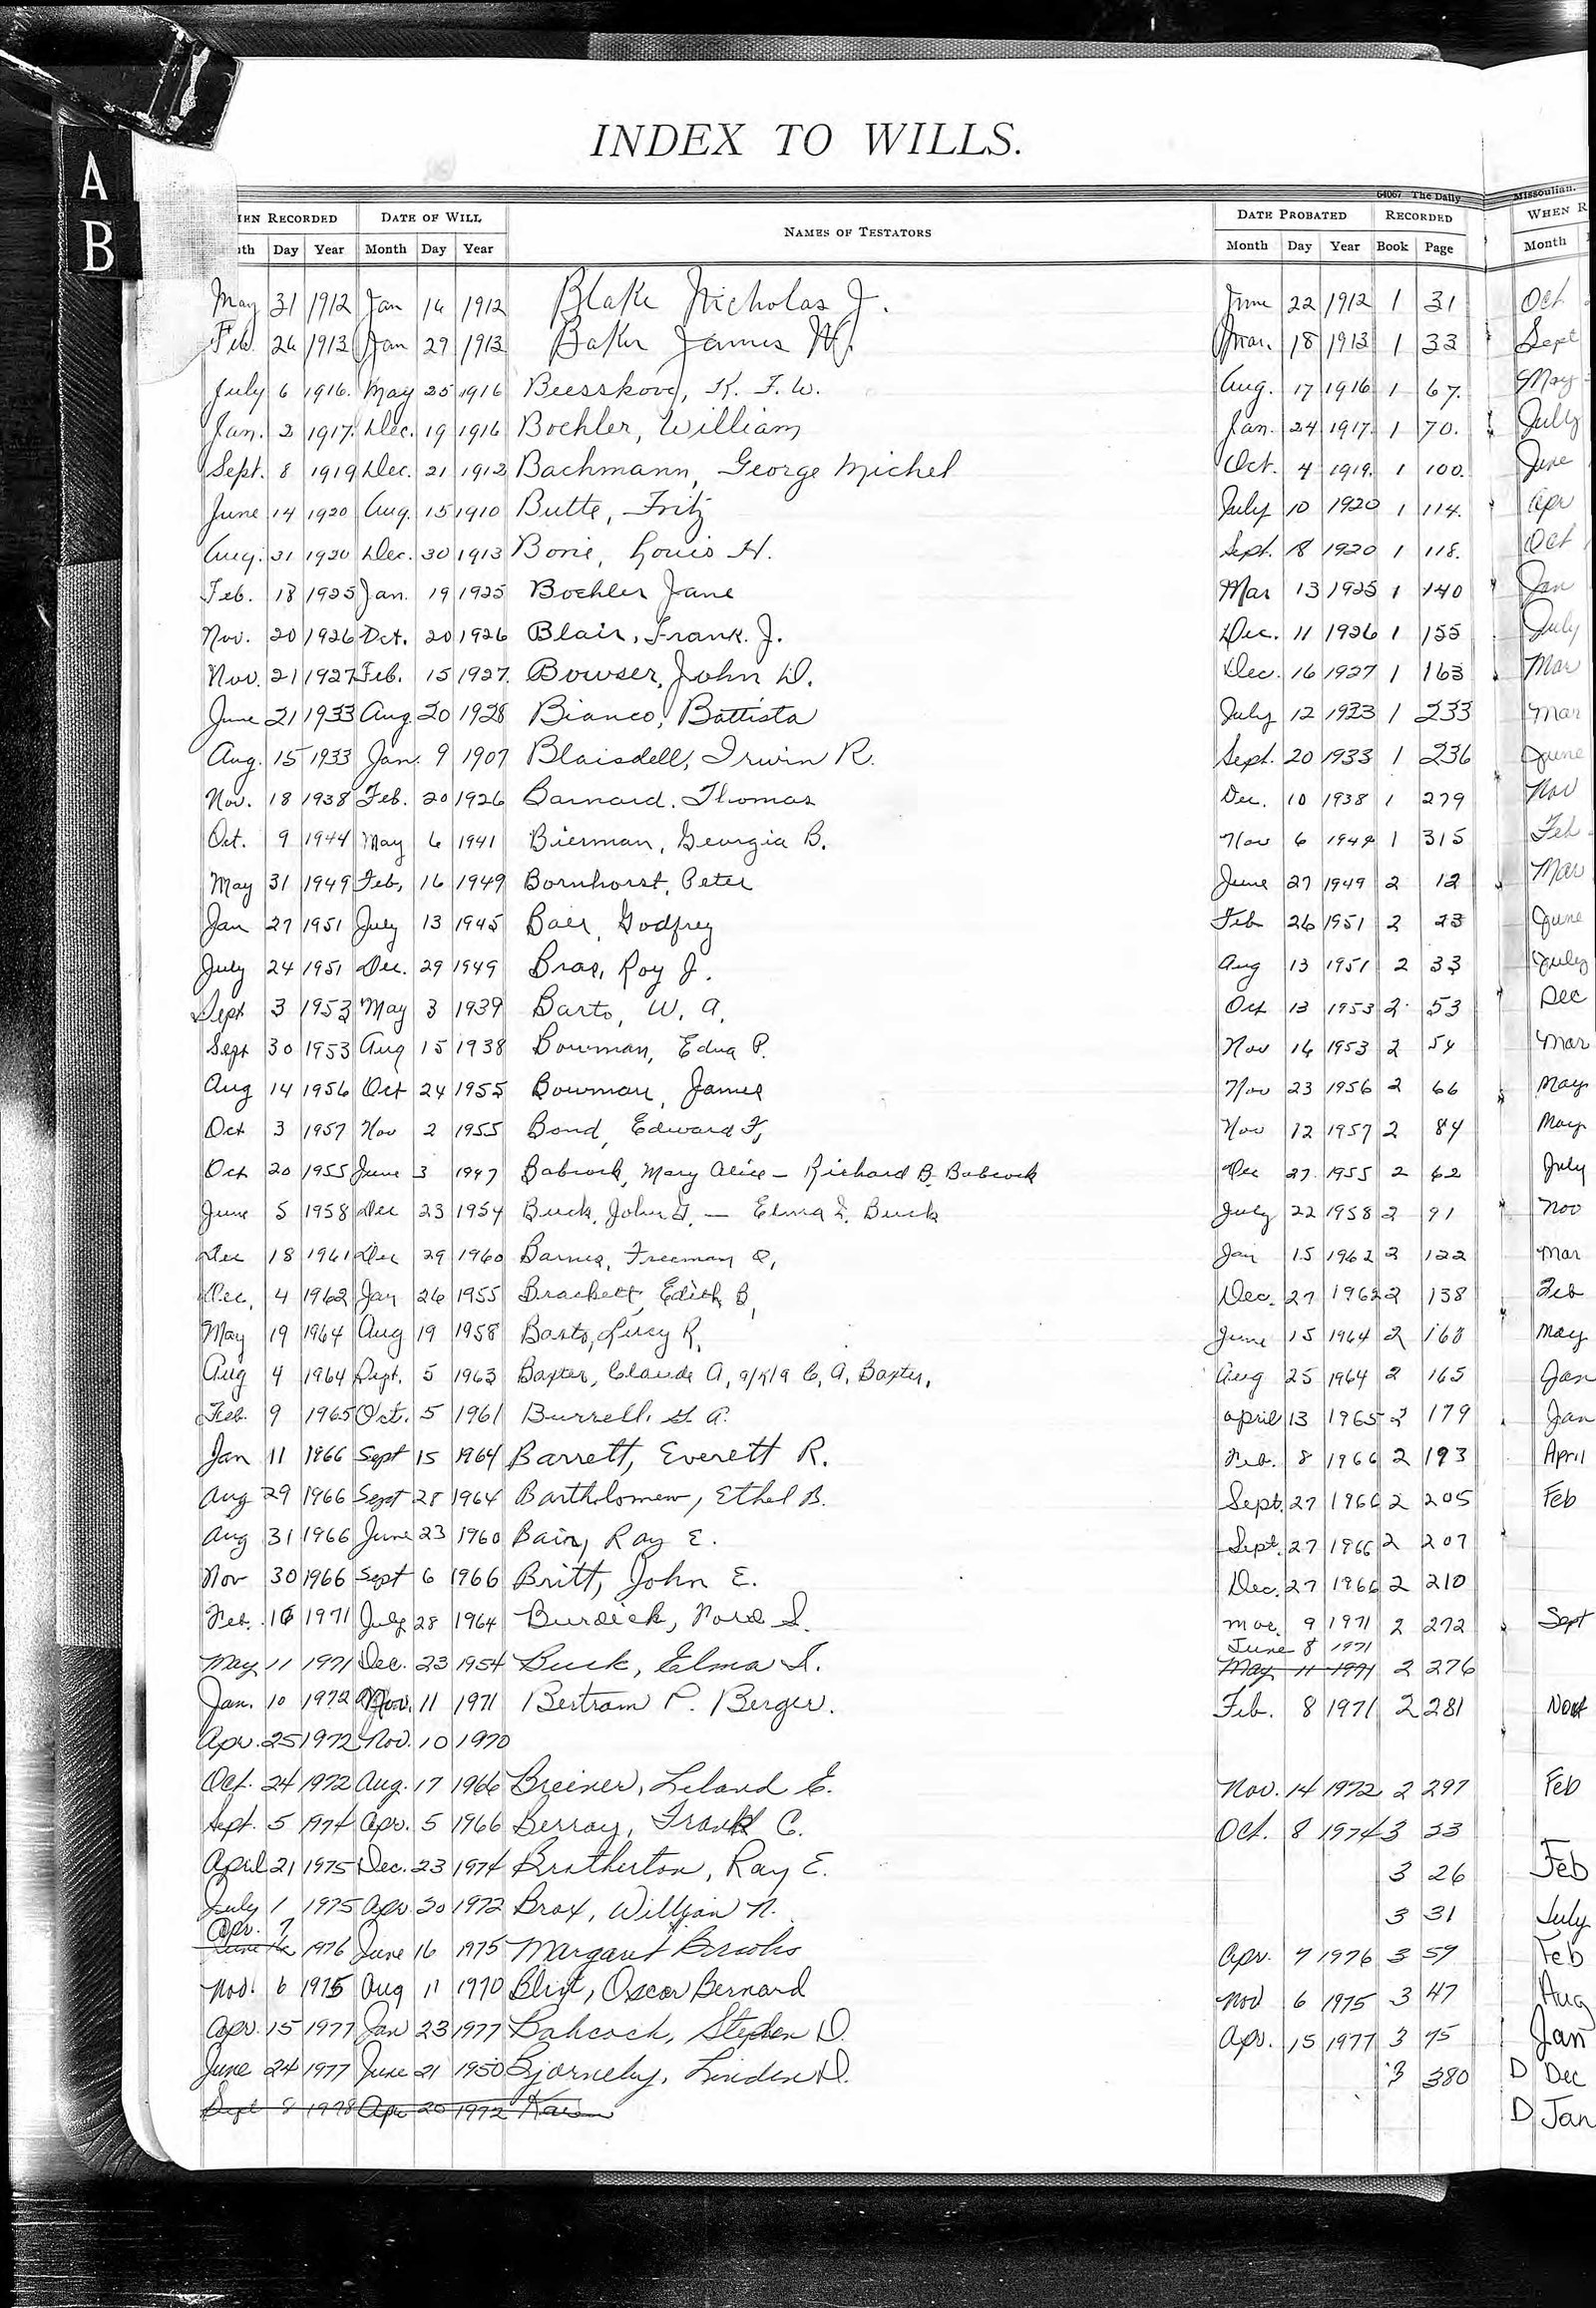 A
B
INDEX TO WILLS.
64067 The Daily Missoulian.
HEN RECORDED DATE OF WILL NAMES OF TESTATORS DATE PROBATED RECORDED WHEN R
th Day Year Month Day Year Month Day Year Book Page Month
May 31 1912 Jan 16 1912 Blake Nicholas J. June 22 1912 1 31 Oct
Feb. 26 1913 Jan 29 1913 Baker James W. Mar. 18 1913 1 33 Sept
July 6 1916. May 25 1916 Beesskove, K. F. W. Aug. 17 1916 1 67. May
Jan. 2 1917. Dec. 19 1916 Boehler, William Jan. 24 1917. 1 70. July
Sept. 8 1919 Dec. 21 1912 Bachmann, George Michel Oct. 4 1919. 1 100. June
June 14 1920 Aug. 15 1910 Butte, Fritz July 10 1920 1 114. Apr
Aug. 31 1920 Dec. 30 1913 Borie, Louis H. Sept. 18 1920 1 118. Oct
Feb. 18 1925 Jan. 19 1925 Boehler Jane Mar 13 1925 1 140 Jan
Nov. 20 1926 Oct. 20 1926 Blair, Frank. J. Dec. 11 1926 1 155 July
Nov. 21 1927 Feb. 15 1927. Bowser, John D. Dec. 16 1927 1 163 Mar
June 21 1933 Aug. 20 1928 Bianco, Battista July 12 1933 1 233 Mar
Aug. 15 1933 Jan. 9 1907 Blaisdell, Irwin R. Sept. 20 1933 1 236 June
Nov. 18 1938 Feb. 20 1926 Barnard. Thomas Dec. 10 1938 1 279 Nov
Oct. 9 1944 May 6 1941 Bierman, Georgia B. Nov 6 1944 1 315 Feb
May 31 1949 Feb, 16 1949 Bornhorst, Peter June 27 1949 2 12 Mar
Jan 27 1951 July 13 1945 Baer, Godfrey Feb 26 1951 2 23 June
July 24 1951 Dec. 29 1949 Bras, Roy J. Aug 13 1951 2 33 July
Sept 3 1953 May 3 1939 Barto, W. A. Oct 13 1953 2 53 Dec
Sept 30 1953 Aug 15 1938 Bowman, Edna P. Nov 16 1953 2 54 Mar
Aug 14 1956 Oct 24 1955 Bowman, James Nov 23 1956 2 66 May
Oct 3 1957 Nov 2 1955 Bond, Edward F, Nov 12 1957 2 84 May
Oct 20 1955 June 3 1947 Babcock, Mary Alice - Richard B. Babcock Dec 27 1955 2 62 July
June 5 1958 Dec 23 1954 Buck, John G. - Elma I. Buck July 22 1958 2 91 Nov
Dec 18 1961 Dec 29 1960 Barnes, Freeman O, Jan 15 1962 2 122 Mar
Dec, 4 1962 Jan 26 1955 Brackett, Edith B, Dec. 27 1962 2 138 Feb
May 19 1964 Aug 19 1958 Barto, Lucy R, June 15 1964 2 160 May
Aug 4 1964 Sept. 5 1963 Baxter, Claude A, a/k/a C, A, Baxter, Aug 25 1964 2 165 Jan
Feb. 9 1965 Oct. 5 1961 Burrell, G. A. April 13 1965 2 179 Jan
Jan 11 1966 Sept 15 1964 Barrett, Everett R. Feb. 8 1966 2 193 April
Aug 29 1966 Sept 28 1964 Bartholomew, Ethel B. Sept. 27 1966 2 205 Feb
Aug 31 1966 June 23 1960 Bair, Ray E. Sept. 27 1966 2 207
Nov 30 1966 Sept 6 1966 Britt, John E. Dec. 27 1966 2 210
Feb. 16 1971 July 28 1964 Burdick, Nord S. Mar. 9 1971 2 272 Sept
June 8 1971
May 11 1971 Dec. 23 1954 Buck, Elma I. May 11 1971 2 276
Jan. 10 1972 Nov. 11 1971 Bertram P. Berger. Feb. 8 1971 2 281 Nov
Apr. 25 1972 Nov. 10 1970
Oct. 24 1972 Aug. 17 1966 Breiner, Leland E. Nov. 14 1972 2 297 Feb
Sept. 5 1974 Apr. 5 1966 Berray, Frank C. Oct. 8 1974 3 23
April 21 1975 Dec. 23 1974 Brotherton, Ray E. 3 26 Feb
July 1 1975 Apr. 20 1972 Brox, William N. 3 31 July
Apr. 7
June 16 1976 June 16 1975 Margaret Brooks Apr. 7 1976 3 59 Feb
Nov. 6 1975 Aug 11 1970 Oscar Bernard Nov 6 1975 3 47 Aug
Apr. 15 1977 Jan 23 1977 Babcock, Stephen D. Apr. 15 1977 3 75 Jan
June 24 1977 June 21 1950 Bjorneby, Linden D. 3 380 D Dec
Sept 8 1978 Apr 20 1972 D Jan